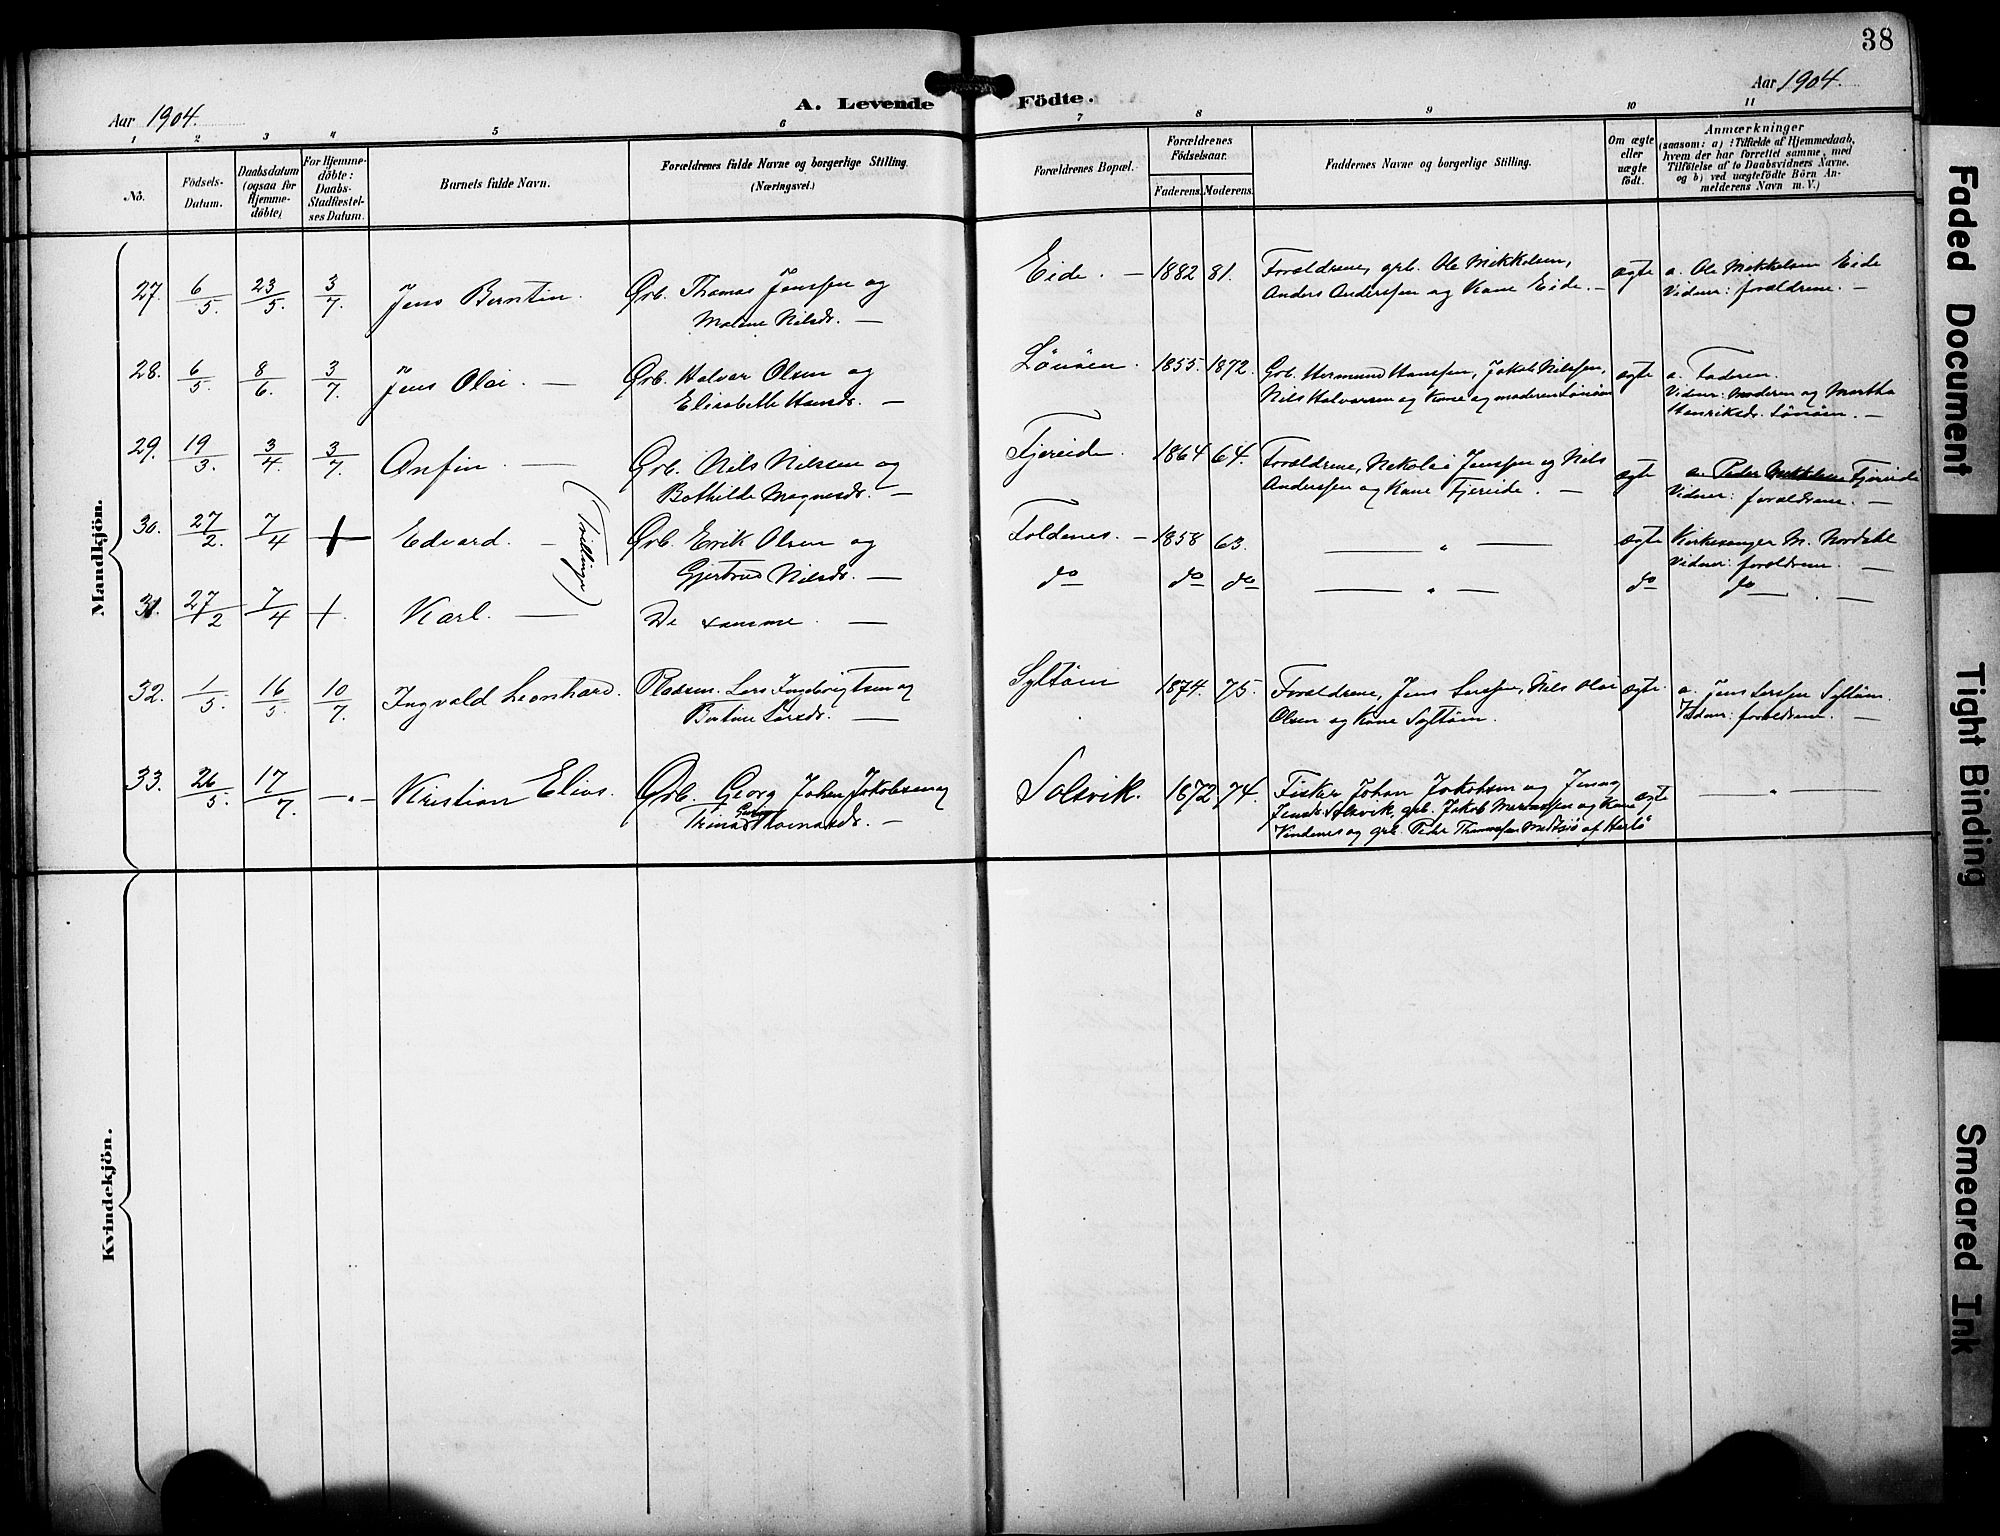 38
Aar 1904.
A. Levende Födte.
Aar 1904.
1 2 3 4 5 6 7 8 9 10 11
No.
Födsels-
Datum.
Daabsdatum
(ogsaa for
Hjemme-
döbte)
For Hjemme-
döbte:
Daabs-
Stadfæstel-
ses Datum.
Barnets fulde Navn.
Forældrenes fulde Navne og borgerlige Stilling.
(Næringsvei.)
Forældrenes Bopæl.
Forældrenes
Födselsaar.
Faderens. Moderens.
Faddernes Navne og borgerlige Stilling.
Om ægte
eller
uægte
födt.
Anmærkninger
(saasom: a) i Tilfælde af Hjemmedaab,
hvem der har forrettet samme, med
Tilföielse af to Daabsvidners Navne.
og b) ved uægtefödte Börn An-
melderens Navn m. V.)
Mandkjön.
27. 6/5. 23/5. 3/7. Jens Berntin. Grb. Thomas Jenssen og
Malene Nilsdr. —
Eide. — 1882 81. Forældrene, grb. Ole Mikkelsen,
Anders Anderssen og Kone Eide. —
ægte a. Ole Mikkelsen Eide
Vidner: forældrene. —
28. 6/5. 8/6. 3/7. Jens Olai. — Grb. Halvor Olsen og
Elisabeth Hansdr. —
Lönöen. 1855. 1872. Grb. Hermund Hanssen, Jakob Nilssen,
Nils Halvorsen og Kone og moderen Lönöen
ægte a. Faderen.
Vidner: Moderen og Martha
Henriksdr. Lönöen. —
29. 19/3. 3/4. 3/7. Anfin. — Grb. Nils Nilssen og
Bothilde Magnesdr. —
Fjereide. 1864 64. Forældrene, Nikolai Jenssen og Nils
Anderssen og Kone Fjereide. —
ægte a. Peder Mikkelsen Fjereide
Vidner: forældrene. —
30. 27/2. 7/4 + Edvard. — (Tvillinger) Grb. Erik Olsen og
Gjertrud Nilsdr. —
Toldenes. — 1858 63. — " — ægte Kirkesanger M. Nordahl
Vidner: forældrene. —
31. 27/2 7/4 +. Karl. — De samme. —
do do do — " — do do — . —
32. 1/5. 16/5. 10/7. Ingvald Leonhard. Pladsm. Lars Ingebrigtsen og
Bertine Larsdr. —
Syltöen 1874. 75. Forældrene, Jens Larssen, Nils Olai
Olsen og Kone Syltöen.
ægte. a. Jens Larssen Syltöen
Vidner: forældrene. —
33. 26/5. 17/7. — " — Kristian Elias. Grb. Georg Johan Jakobsen og
Solsvik. 1872 74. Fisker Johan Jakobsen og Jenny
Jensdr. Solsvik, grb. Jakob Monssen og Kone
Vindenes og grb. Peder Thomassen Midtsiö af Herlö
ægte — " —
Kvindekjön.
Faded Document
Tight Binding
Smeared Ink